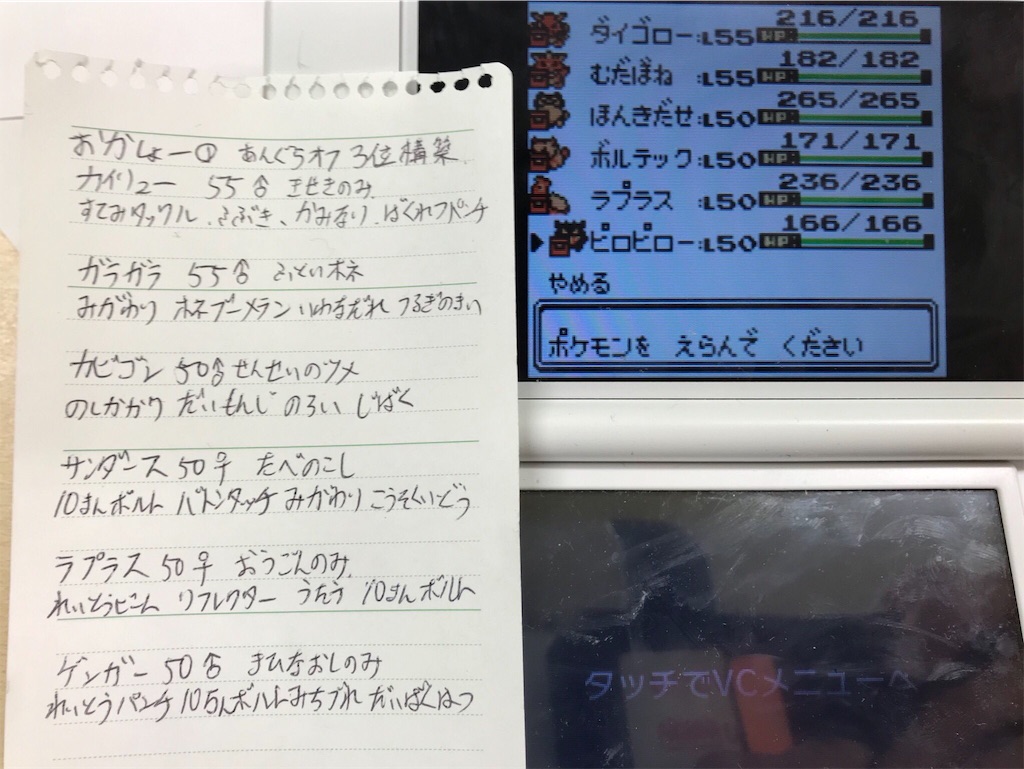 おかしょー① あんぐらオフ 3位構築
カイリュー 55♂ きせきのみ
すてみタックル、ふぶき、かみなり、ばくれつパンチ
ガラガラ 55♂ ふといホネ
みがわり ホネブーメラン いわなだれ つるぎのまい
カビゴン 50♂ せんせいのツメ
のしかかり だいもんじ のろい じばく
サンダース 50♀ たべのこし
10まんボルト バトンタッチ みがわり こうそくいどう
ラプラス 50♀ おうごんのみ
れいとうビーム リフレクター うたう 10まんボルト
ゲンガー 50♂ まひなおしのみ
れいとうパンチ 10万んボルト みちづれ だいばくはつ
216/216
ダイゴロー :L55 HP
182/182
むだぼね :L55 HP
265/265
ほんきだせ :L50 HP
171/171
ボルテック :L50 HP
236/236
ラプラス :L50 HP
166/166
▶ピロピロー :L50 HP
やめる
ポケモンを えらんで ください
タッチでVCメニューへ